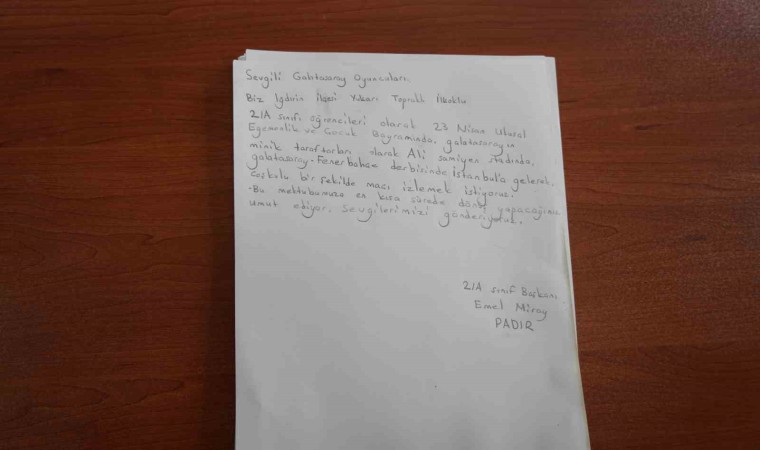 Sevgili Galatasaray Oyuncuları.
Biz Iğdırın ilçesi Yukarı Topraklı İlkokulu
2/A sınıfı öğrencileri olarak 23 Nisan Ulusal
Egemenlik ve Çocuk Bayramında, galatasarayın
minik taraftarları olarak Ali samiyen stadında,
galatasaray-Fenerbahçe derbisinde İstanbul'a gelerek,
coşkulu bir şekilde maçı izlemek istiyoruz.
-Bu mektubumuza en kısa sürede dönüş yapacağınızı
umut ediyor, sevgilerimizi gönderiyoruz.
2/A sınıf Başkanı
Emel Miray
PADIR